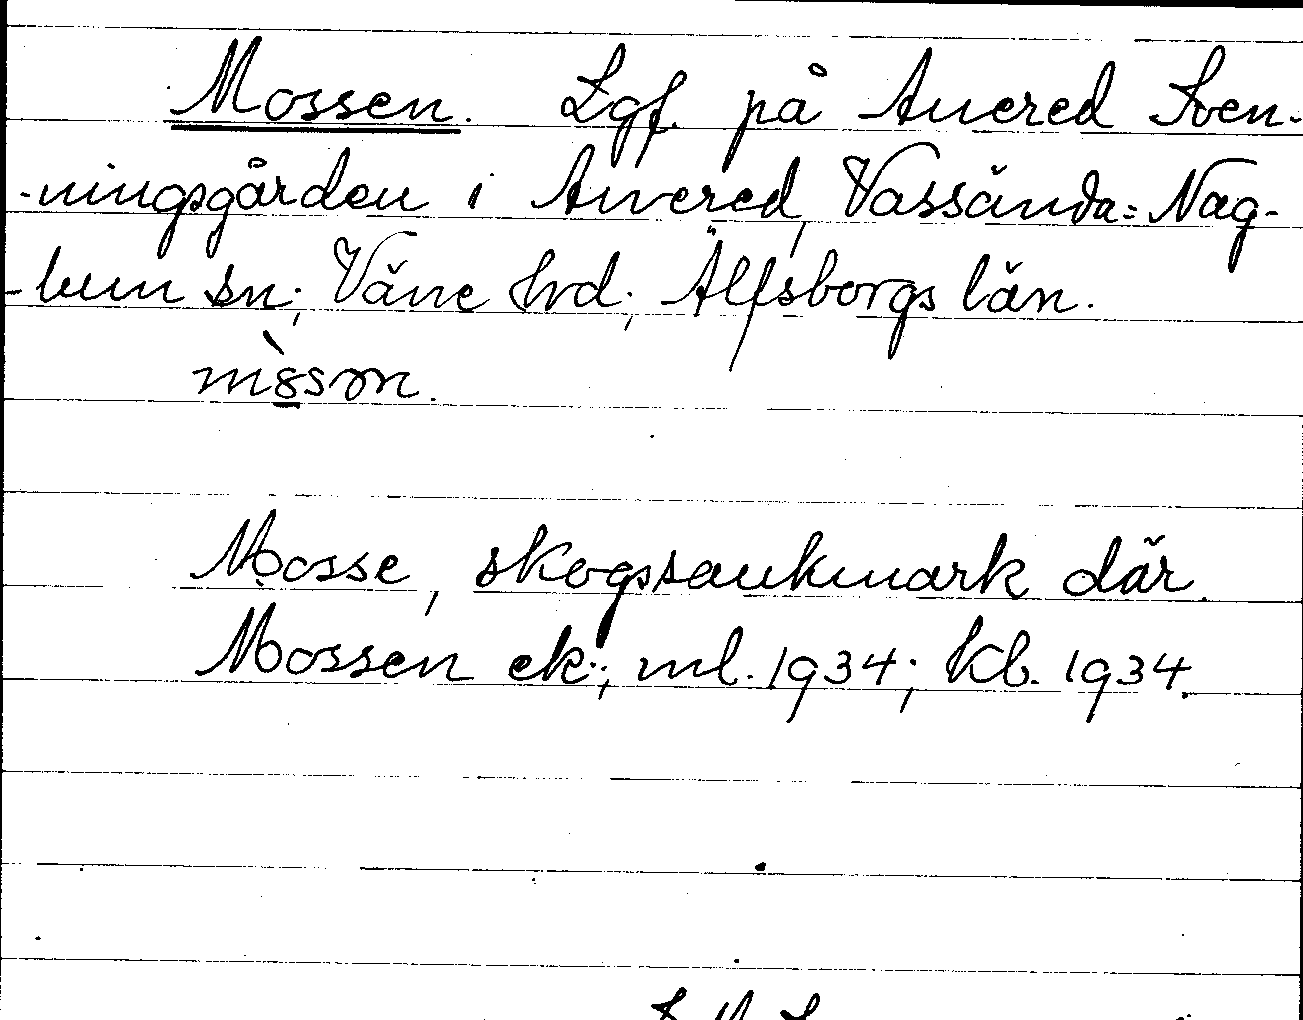 Mossen. Lgf. på Anered Sven-
-ningsgården i Anered, Vassända=Nag-
-lum sn; Väne hrd; Älfsborgs län.
Mosse, skogssankmark där.
Mossen ek:; ml. 1934; kb. 1934.